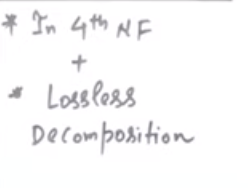 * In 4th NF
+
* Lossless
Decomposition